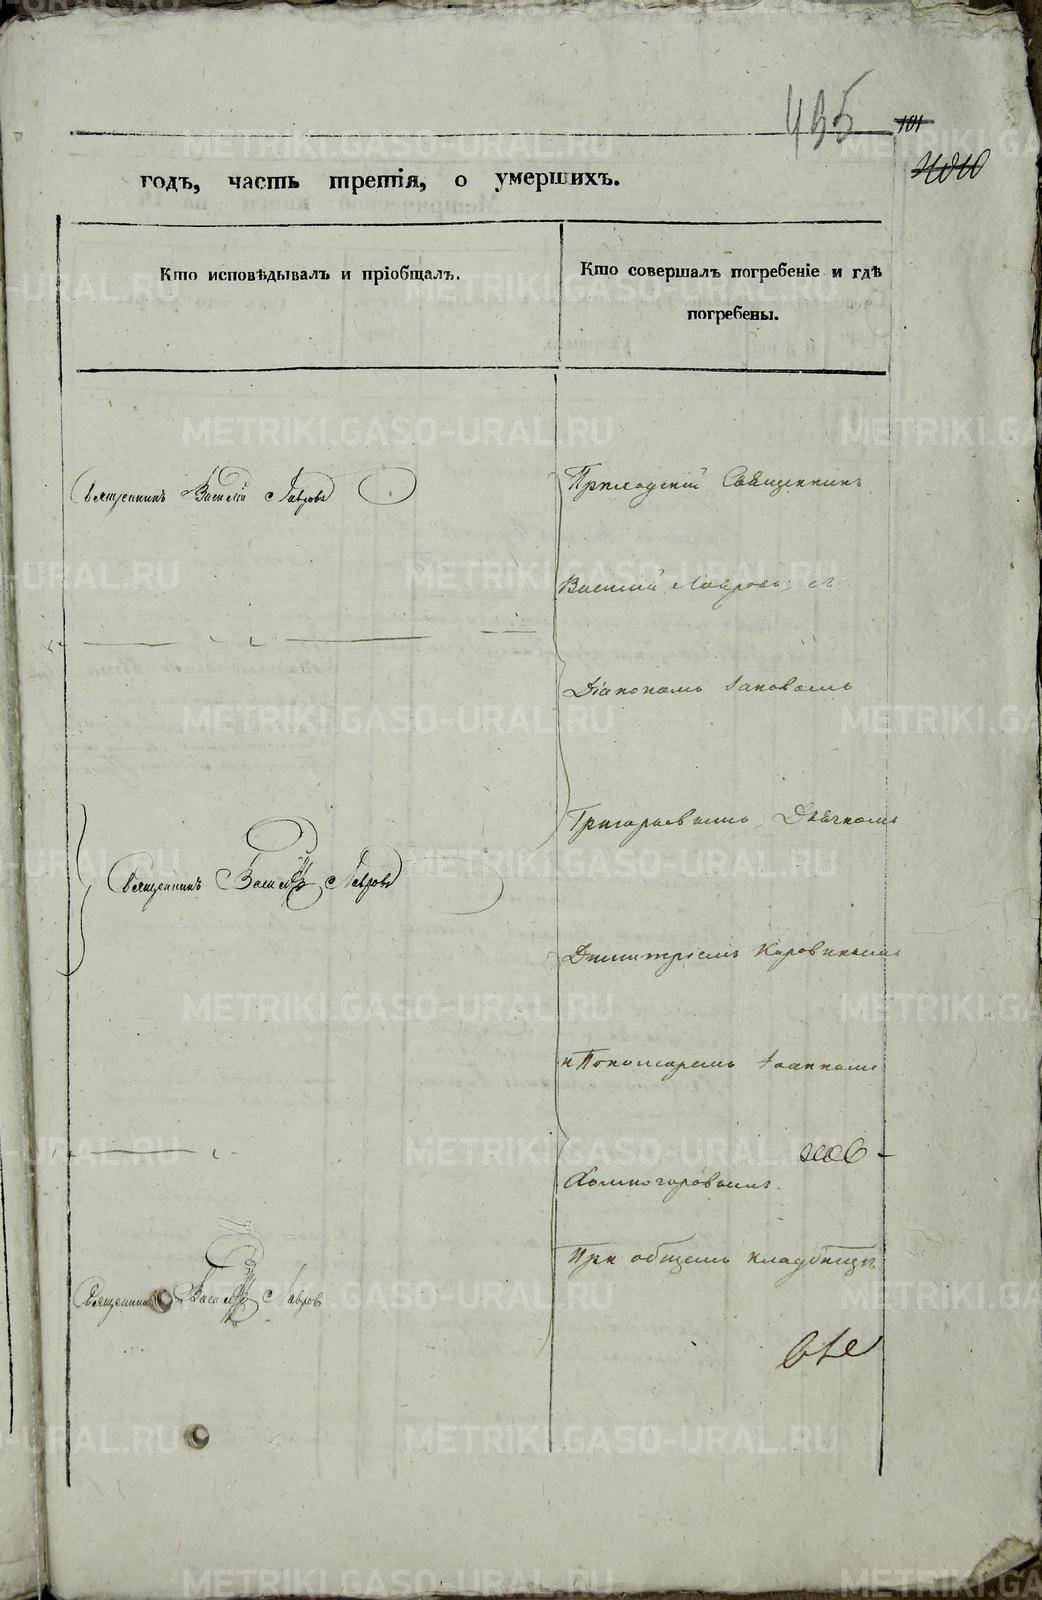 435
101
годъ, часть третія, о умершихъ.
Кто исповѣдывалъ и пріобщалъ.
Кто совершалъ погребеніе и гдѣ
погребены.
Священникъ Василій Лавровъ
Приходскій Священникъ
Василій Лавровъ съ
Діакономъ Іаковомъ
Григорьевымъ, Дьячкомъ
Священникъ Василій Лавровъ
Димитріемъ Коровинымъ
и Пономаремъ Іоанномъ
Холмогоровымъ.
При общемъ кладбищѣ
Священникъ Василій Лавровъ
METRIKI.GASO-URAL.RU